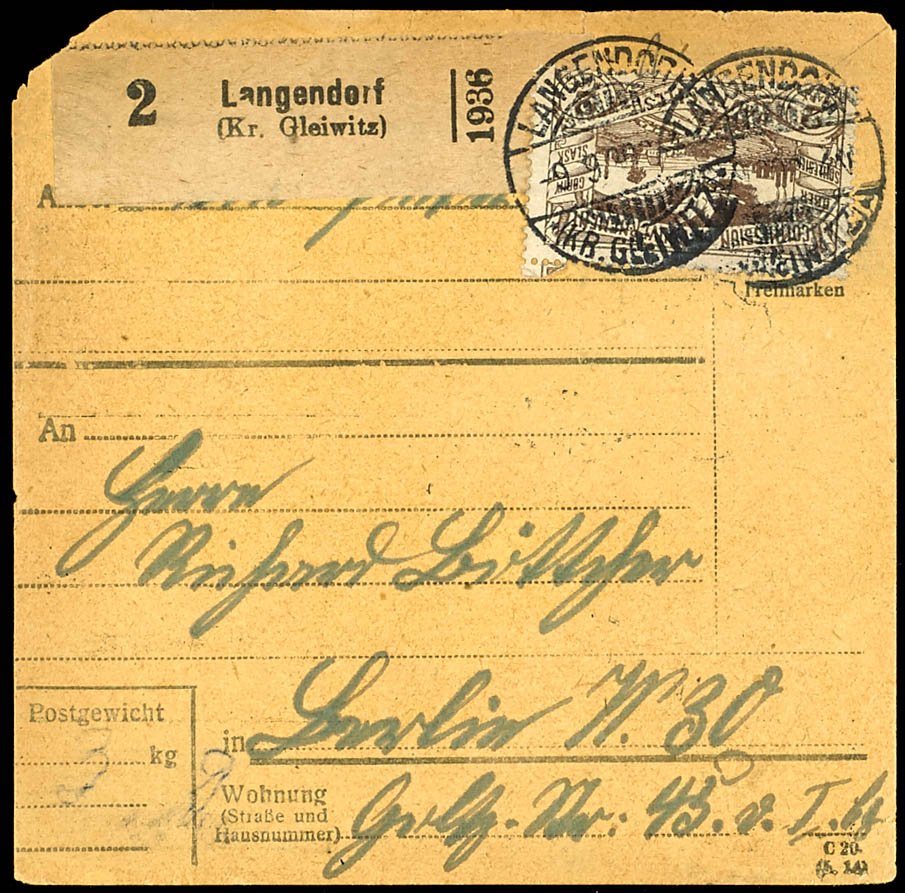 2 Langendorf
(Kr. Gleiwitz) 1936
LANGENDORF
(KR. GLEIWITZ)
LANGENDORF
COMMISSION
Freimarken
An
Herrn
Richard Böttcher
Postgewicht
kg
in Berlin W. 30
Wohnung
(Straße und
Hausnummer) Goltz-Str: 43. v. I.
C 20.
(5. 14)